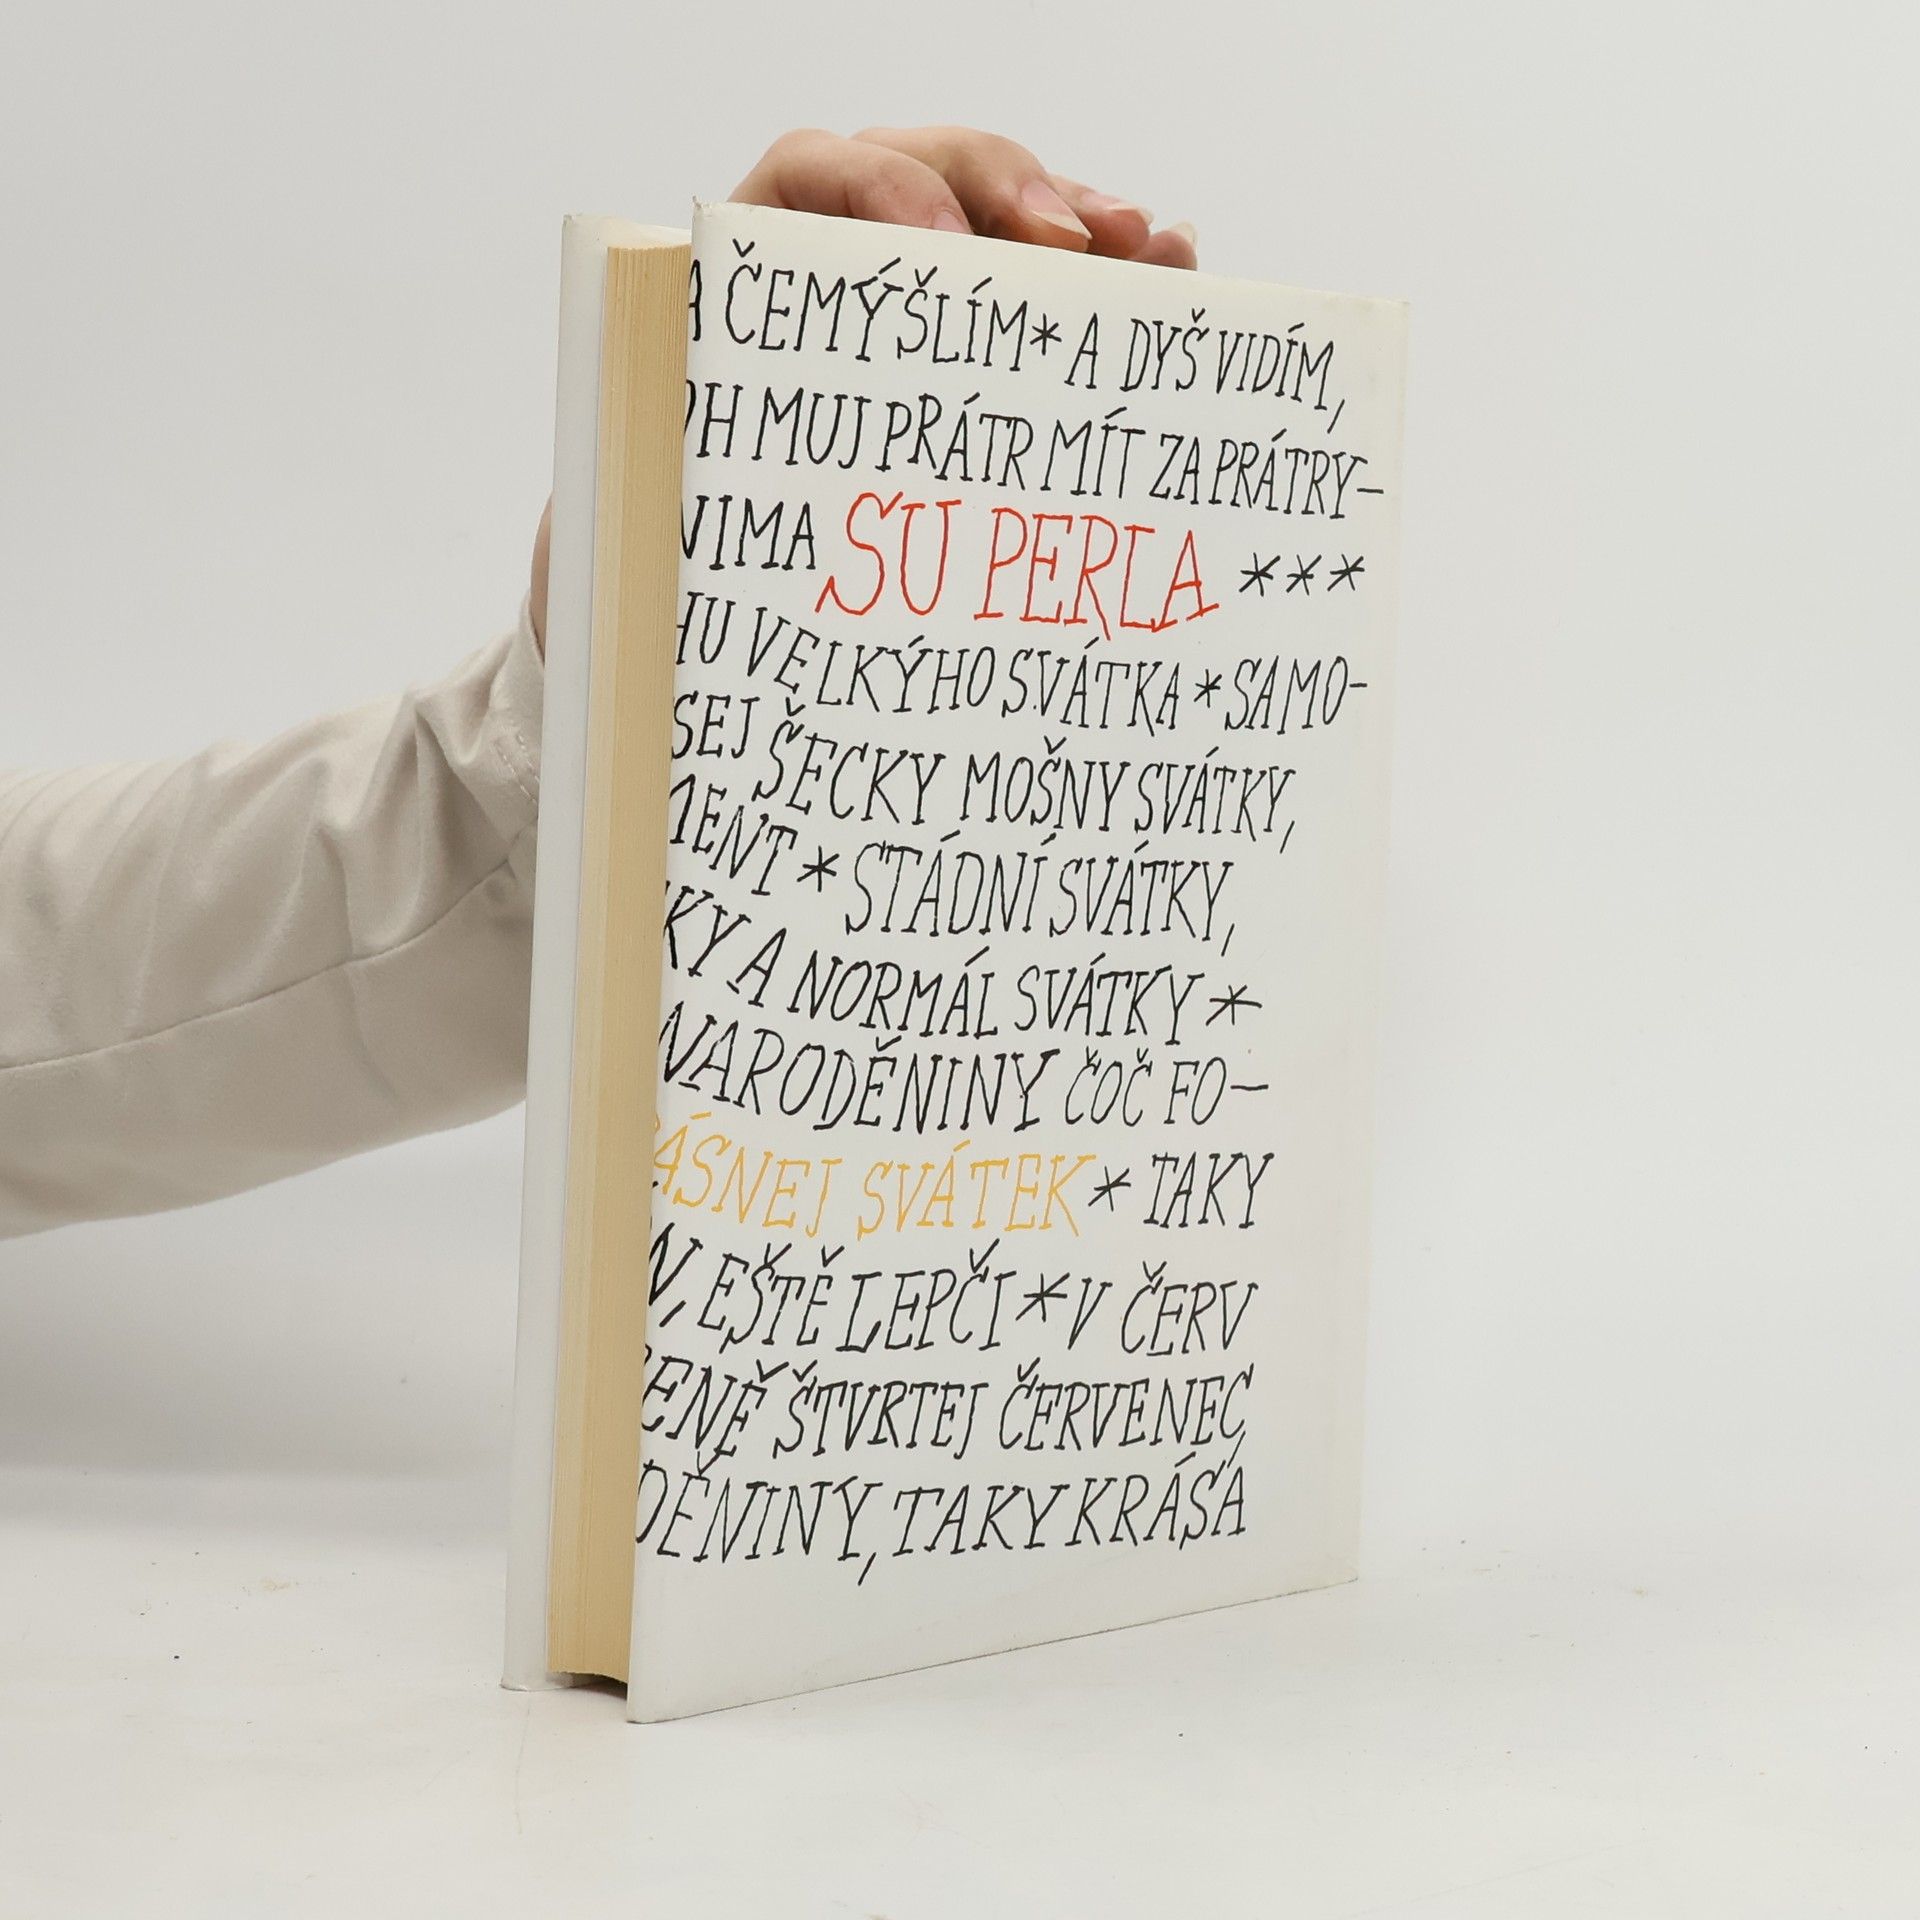 A ČEMÝŠLÍM * A DYŠ VIDÍM,
OH MUJ PRÁTR MÍT ZA PRÁTRY–
NIMA SU PERLA ***
HU VELKÝHO SVÁTKA * SAMO-
SEJ ŠECKY MOŠNY SVÁTKY,
MENT * STÁDNÍ SVÁTKY,
KY A NORMÁL SVÁTKY *
NARODĚNINY ČOČ FO–
ÁSNEJ SVÁTEK * TAKY
N, EŠTĚ LEPČI * V ČERV
ENĚ ŠTVRTEJ ČERVENEC,
DĚNINY, TAKY KRÁSÁ